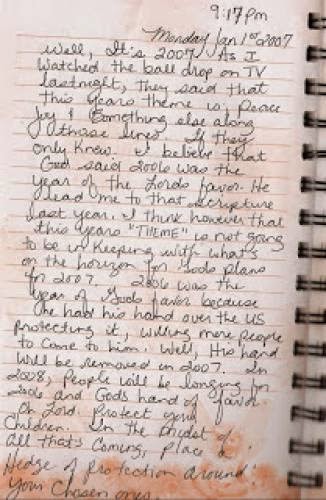 9:17pm
Monday Jan 1st 2007
Well, It's 2007. As I
Watched the ball drop on TV
last night, they said that
this years theme is, Peace
Joy & something else along
those lines. If they
only knew. I believe that
God said 2006 was the
year of the Lords favor. He
lead me to that scripture
last year. I think however that
this years "THEME" is not going
to be in Keeping with what's
on the horizon for Gods plans
for 2007. 2006 was the
year of Gods favor because
he had his hand over the US
protecting it, willing more people
to come to him. Well, His hand
Will be removed in 2007. In
2008, People will be longing for
2006 and Gods hand of favor.
Oh Lord. Protect your
Children. In the midst of
all that's Coming, place a
Hedge of protection around
Your Chosen ones.